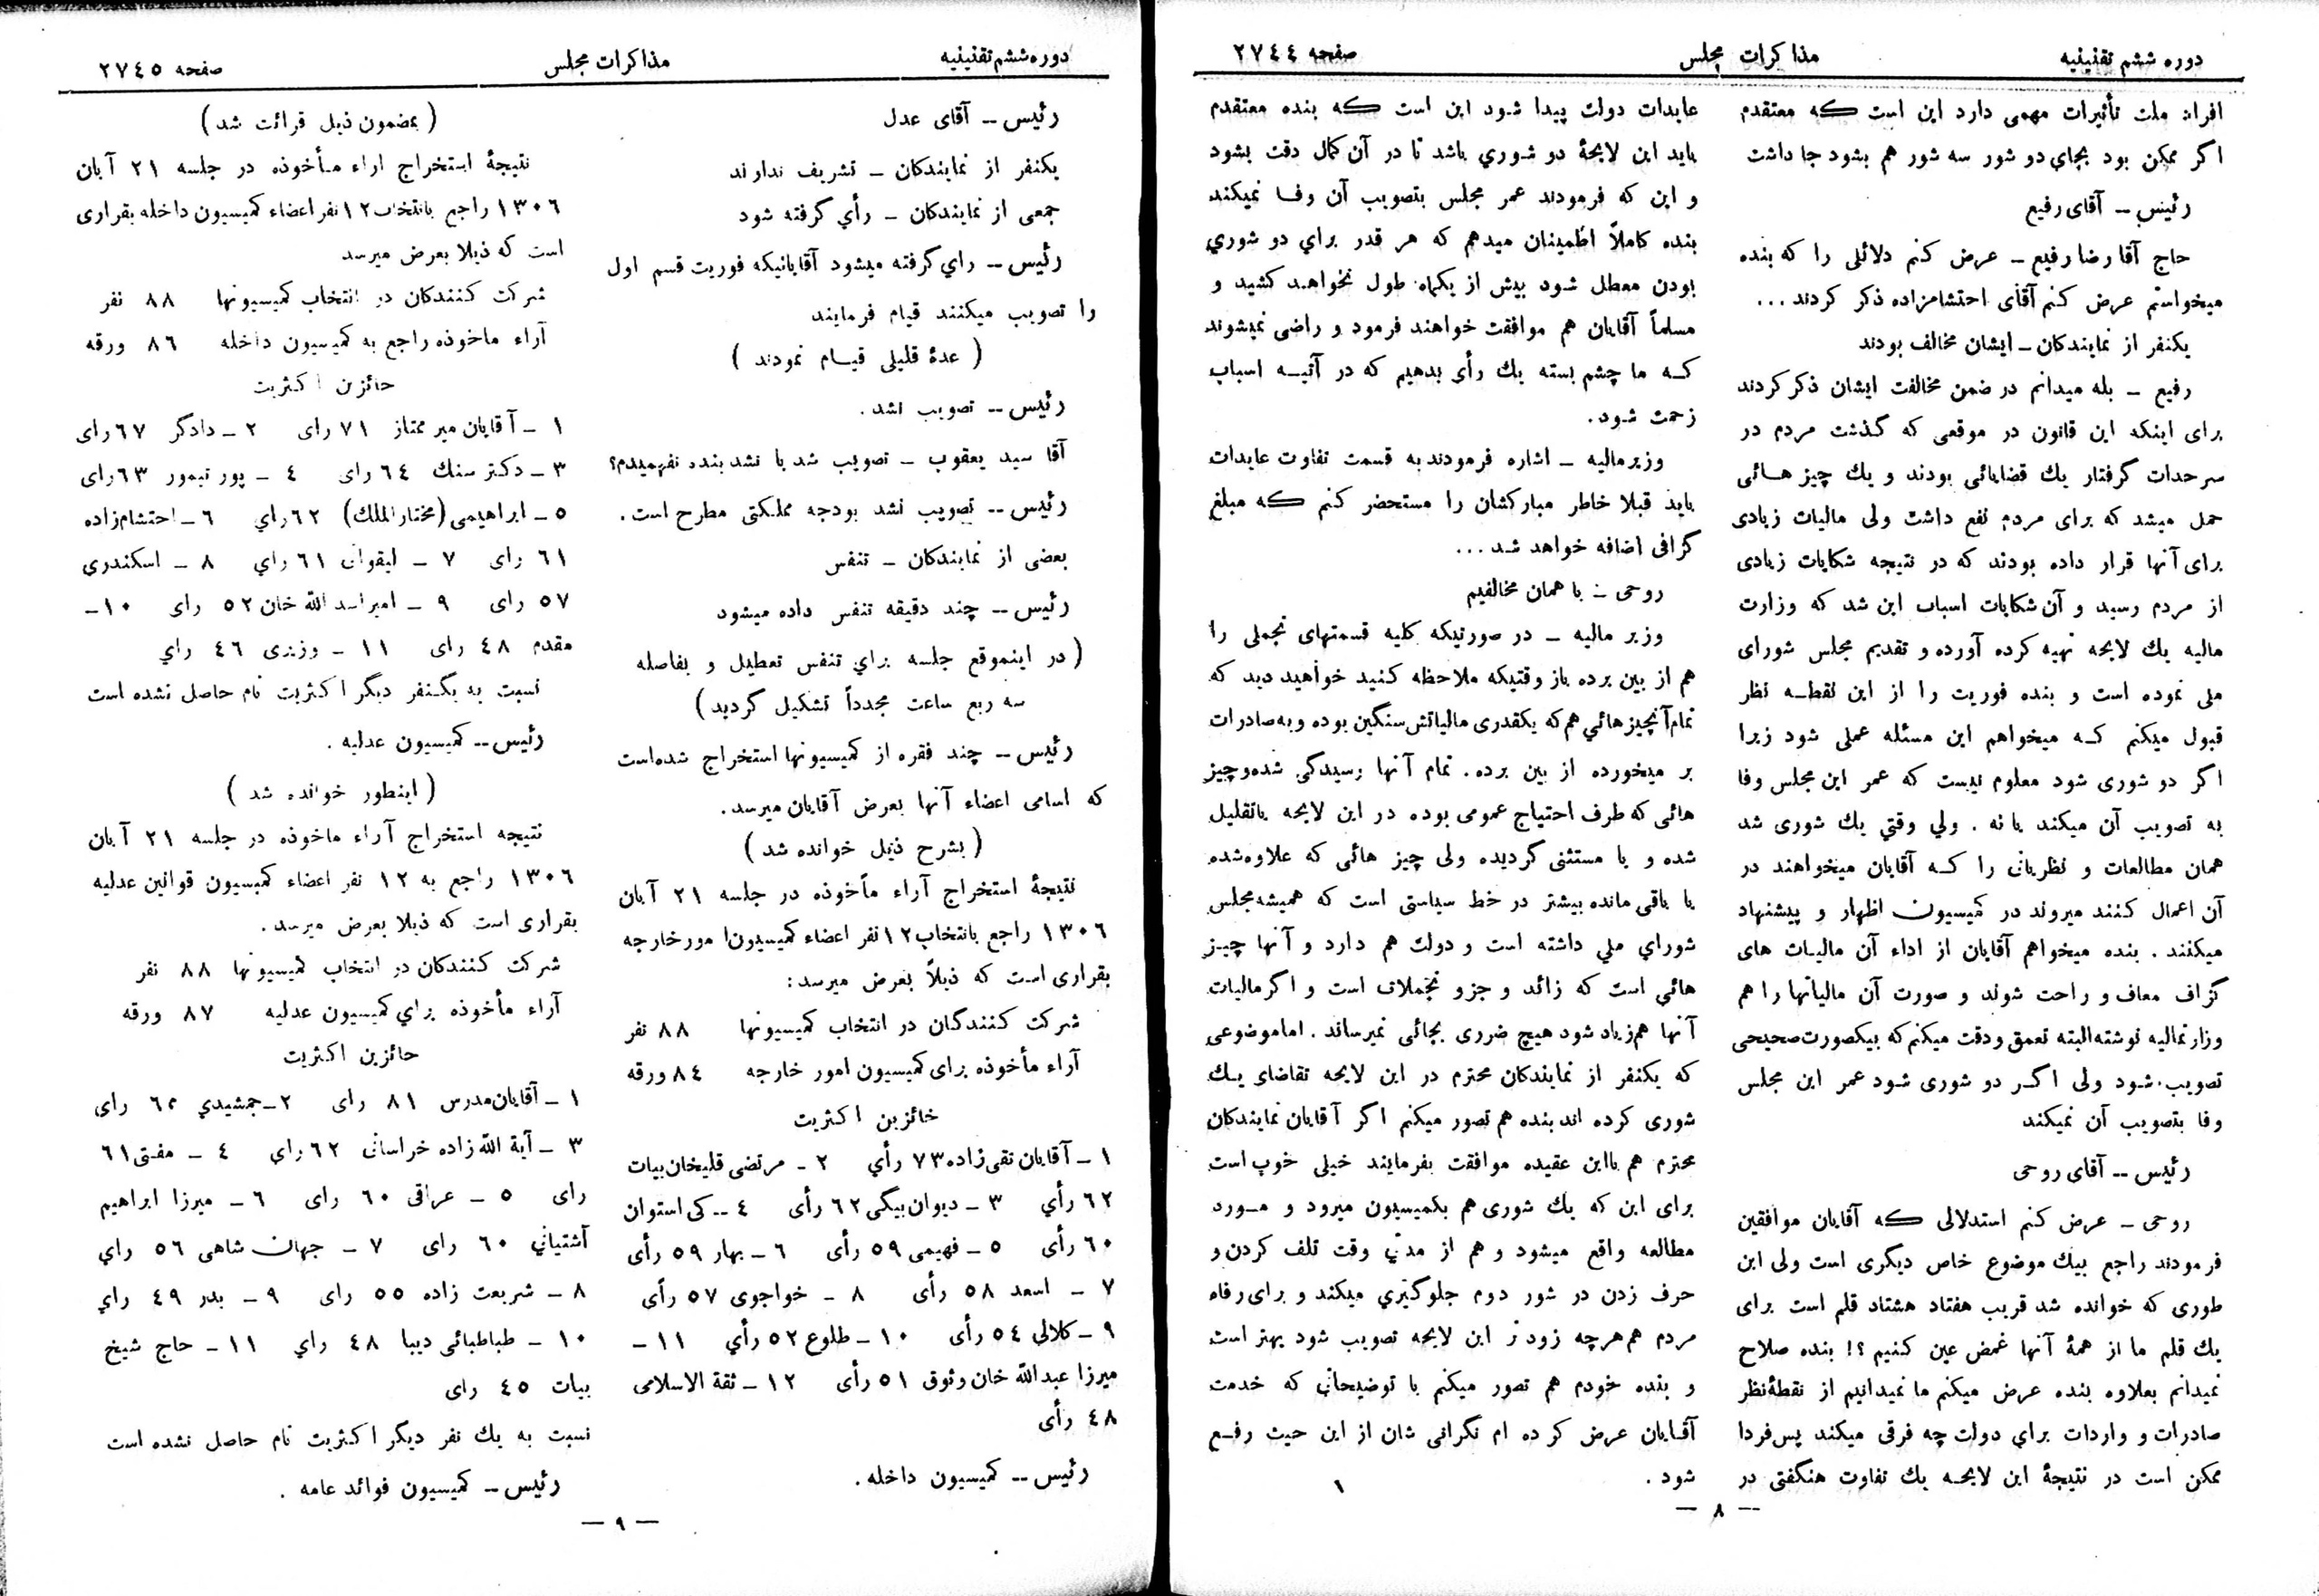 دوره ششم تقنینیه
مذاکرات مجلس
صفحه ۲۷۴۴
افراد ملت تأثیرات مهمی دارد این است که معتقدم
اگر ممکن بود بجای دو شور سه شور هم بشود جا داشت
رئیس ــ آقای رفیع
حاج آقا رضا رفیع ــ عرض کنم دلائلی را که بنده
میخواستم عرض کنم آقای احتشامزاده ذکر کردند ...
یکنفر از نمایندگان ــ ایشان مخالف بودند
رفیع ــ بله میدانم در ضمن مخالفت ایشان ذکر کردند
برای اینکه این قانون در موقعی که گذشت مردم در
سرحدات گرفتار یك قضایائی بودند و یك چیز هائی
حمل میشد که برای مردم نفع داشت ولی مالیات زیادی
برای آنها قرار داده بودند که در نتیجه شکایات زیادی
از مردم رسید و آن شکایات اسباب این شد که وزارت
مالیه یك لایحه تهیه کرده آورده و تقدیم مجلس شورای
ملی نموده است و بنده فوریت را از این نقطه نظر
قبول میکنم که میخواهم این مسئله عملی شود زیرا
اگر دو شوری شود معلوم نیست که عمر این مجلس وفا
به تصویب آن میکند یا نه . ولي وقتي یك شوری شد
همان مطالعات و نظریاتی را که آقایان میخواهند در
آن اعمال کنند میروند در کمیسیون اظهار و پیشنهاد
میکنند . بنده میخواهم آقایان از اداء آن مالیات های
گزاف معاف و راحت شوند و صورت آن مالیاتها را هم
وزارتمالیه نوشته البته تعمق و دقت میکنم که بیکصورت صحیحی
تصویب شود ولی اگر دو شوری شود عمر این مجلس
وفا بتصویب آن نمیکند
رئیس ــ آقای روحی
روحی ــ عرض کنم استدلالی که آقایان موافقین
فرمودند راجع بیك موضوع خاص دیگری است ولی این
طوری که خوانده شد قریب هفتاد هشتاد قلم است برای
یك قلم ما از همهٔ آنها غمض عین کنیم ؟! بنده صلاح
نمیدانم بعلاوه بنده عرض میکنم ما نمیدانیم از نقطهٔ نظر
صادرات و واردات برای دولت چه فرقی میکند پس فردا
ممکن است در نتیجهٔ این لایحه یك تفاوت هنگفتی در
عایدات دولت پیدا شود این است که بنده معتقدم
باید این لایحهٔ دو شوري باشد تا در آن کمال دقت بشود
و این که فرمودند عمر مجلس بتصویب آن وفا نمیکند
بنده کاملاً اطمینان میدهم که هر قدر براي دو شوري
بودن معطل شود بیش از یکماه طول نخواهد کشید و
مسلماً آقایان هم موافقت خواهند فرمود و راضی نمیشوند
که ما چشم بسته یك رأی بدهیم که در آتیه اسباب
زحمت شود.
وزیر مالیه ــ اشاره فرمودند به قسمت تفاوت عایدات
باید قبلا خاطر مبارکشان را مستحضر کنم که مبلغ
گزافی اضافه خواهد شد ...
روحی ــ با همان مخالفیم
وزیر مالیه ــ در صورتیکه کلیه قسمتهای تجملی را
هم از بین برده باز وقتیکه ملاحظه کنید خواهید دید که
تمام آنچیز هائي هم که یکقدری مالیاتش سنگین بوده و به صادرات
بر میخورده از بین برده . تمام آنها رسیدگی شده و چیز
هائی که طرف احتیاج عمومی بوده در این لایحه یا تقلیل
شده و یا مستثنی گردیده ولی چیز هائی که علاوه شده
یا باقی مانده بیشتر در خط سیاستی است که همیشه مجلس
شورای ملی داشته است و دولت هم دارد و آنها چیز
هائي است که زائد و جزو تجملات است و اگر مالیات
آنها هم زیاد شود هیچ ضرری بجائی نمیرساند . اما موضوعی
که یکنفر از نمایندگان محترم در این لایحه تقاضای یك
شوری کرده اند بنده هم تصور میکنم اگر آقایان نمایندگان
محترم هم با این عقیده موافقت بفرمایند خیلی خوب است
برای این که یك شوری هم بکمیسیون میرود و مورد
مطالعه واقع میشود و هم از مدتی وقت تلف کردن و
حرف زدن در شور دوم جلوگیری میکند و برای رفاه
مردم هم هرچه زودتر این لایحه تصویب شود بهتر است
و بنده خودم هم تصور میکنم با توضیحاتی که خدمت
آقایان عرض کرده ام نگرانی شان از این حیث رفع
شود .
۱
— ۸ —
دوره ششم تقنینیه
مذاکرات مجلس
صفحه ۲۷۴۵
رئیس ــ آقای عدل
یکنفر از نمایندگان ــ تشریف ندارند
جمعی از نمایندگان ــ رأي گرفته شود
رئیس ــ راي گرفته میشود آقایانیکه فوریت قسم اول
را تصویب میکنند قیام فرمایند
( عدهٔ قلیلی قیام نمودند )
رئیس ــ تصویب نشد .
آقا سید یعقوب ــ تصویب شد یا نشد بنده نفهمیدم؟
رئیس ــ تصویب نشد بودجه مملکتی مطرح است .
بعضی از نمایندگان ــ تنفس
رئیس ــ چند دقیقه تنفس داده میشود
( در اینموقع جلسه براي تنفس تعطیل و بفاصله
سه ربع ساعت مجدداً تشکیل گردید )
رئیس ــ چند فقره از کمیسیونها استخراج شده است
که اسامی اعضاء آنها بعرض آقایان میرسد .
( بشرح ذیل خوانده شد )
نتیجهٔ استخراج آراء مأخوذه در جلسه ۲۱ آبان
۱۳۰۶ راجع بانتخاب ۱۲ نفر اعضاء کمیسیون امور خارجه
بقراری است که ذیلاً بعرض میرسد :
شرکت کنندگان در انتخاب کمیسیونها ۸۸ نفر
آراء مأخوذه برای کمیسیون امور خارجه ۸۴ ورقه
حائزین اکثریت
۱ ــ آقایان تقی زاده ۷۳ رأي ۲ ــ مرتضی قلیخان بیات
۶۲ رأي ۳ ــ دیوان بیگی ۶۲ رأی ۴ ــ کی استوان
۶۰ رأی ۵ ــ فهیمی ۵۹ رأی ۶ ــ بهار ۵۹ رأی
۷ ــ اسعد ۵۸ رأی ۸ ــ خواجوی ۵۷ رأی
۹ ــ کلالی ۵۴ رأی ۱۰ ــ طلوع ۵۲ رأي ۱۱ ــ
میرزا عبدالله خان وثوق ۵۱ رأی ۱۲ ــ ثقة الاسلامی
۴۸ رأی
رئیس ــ کمیسیون داخله .
( بمضمون ذیل قرائت شد )
نتیجهٔ استخراج اراء مأخوذه در جلسه ۲۱ آبان
۱۳۰۶ راجع بانتخاب ۱۲ نفر اعضاء کمیسیون داخله بقراری
است که ذیلا بعرض میرسد
شرکت کنندگان در انتخاب کمیسیونها ۸۸ نفر
آراء ماخوذه راجع به کمیسیون داخله ۸۶ ورقه
حائزین اکثریت
۱ ــ آقایان میر ممتاز ۷۱ رای ۲ ــ دادگر ۶۷ رای
۳ ــ دکتر سنك ۶۴ رای ۴ ــ پور تیمور ۶۳ رای
۵ ــ ابراهیمی (مختار الملك) ۶۲ راي ۶ ــ احتشام زاده
۶۱ رای ۷ ــ لیقوانی ۶۱ راي ۸ ــ اسکندری
۵۷ رای ۹ ــ امیر اسد الله خان ۵۲ رای ۱۰ ــ
مقدم ۴۸ رای ۱۱ ــ وزیری ۴۶ راي
نسبت به یکنفر دیگر اکثریت تام حاصل نشده است
رئیس ــ کمیسیون عدلیه .
( اینطور خوانده شد )
نتیجه استخراج آراء ماخوذه در جلسه ۲۱ آبان
۱۳۰۶ راجع به ۱۲ نفر اعضاء کمیسیون قوانین عدلیه
بقراری است که ذیلا بعرض میرسد .
شرکت کنندگان در انتخاب کمیسیونها ۸۸ نفر
آراء مأخوذه براي کمیسیون عدلیه ۸۷ ورقه
حائزین اکثریت
۱ ــ آقایان مدرس ۸۱ رای ۲ ــ جمشیدي رای
۳ ــ آیة الله زاده خراسانی ۶۲ راي ۴ ــ مفتی ۶۱
رای ۵ ــ عراقی ۶۰ رای ۶ ــ میرزا ابراهیم
آشتیاني ۶۰ رای ۷ ــ جهان شاهی ۵۶ راي
۸ ــ شریعت زاده ۵۵ رای ۹ ــ بدر ۴۹ راي
۱۰ ــ طباطبائی دیبا ۴۸ راي ۱۱ ــ حاج شیخ
بیات ۴۵ رای
نسبت به یك نفر دیگر اکثریت تام حاصل نشده است
رئیس ــ کمیسیون فوائد عامه .
— ۹ —